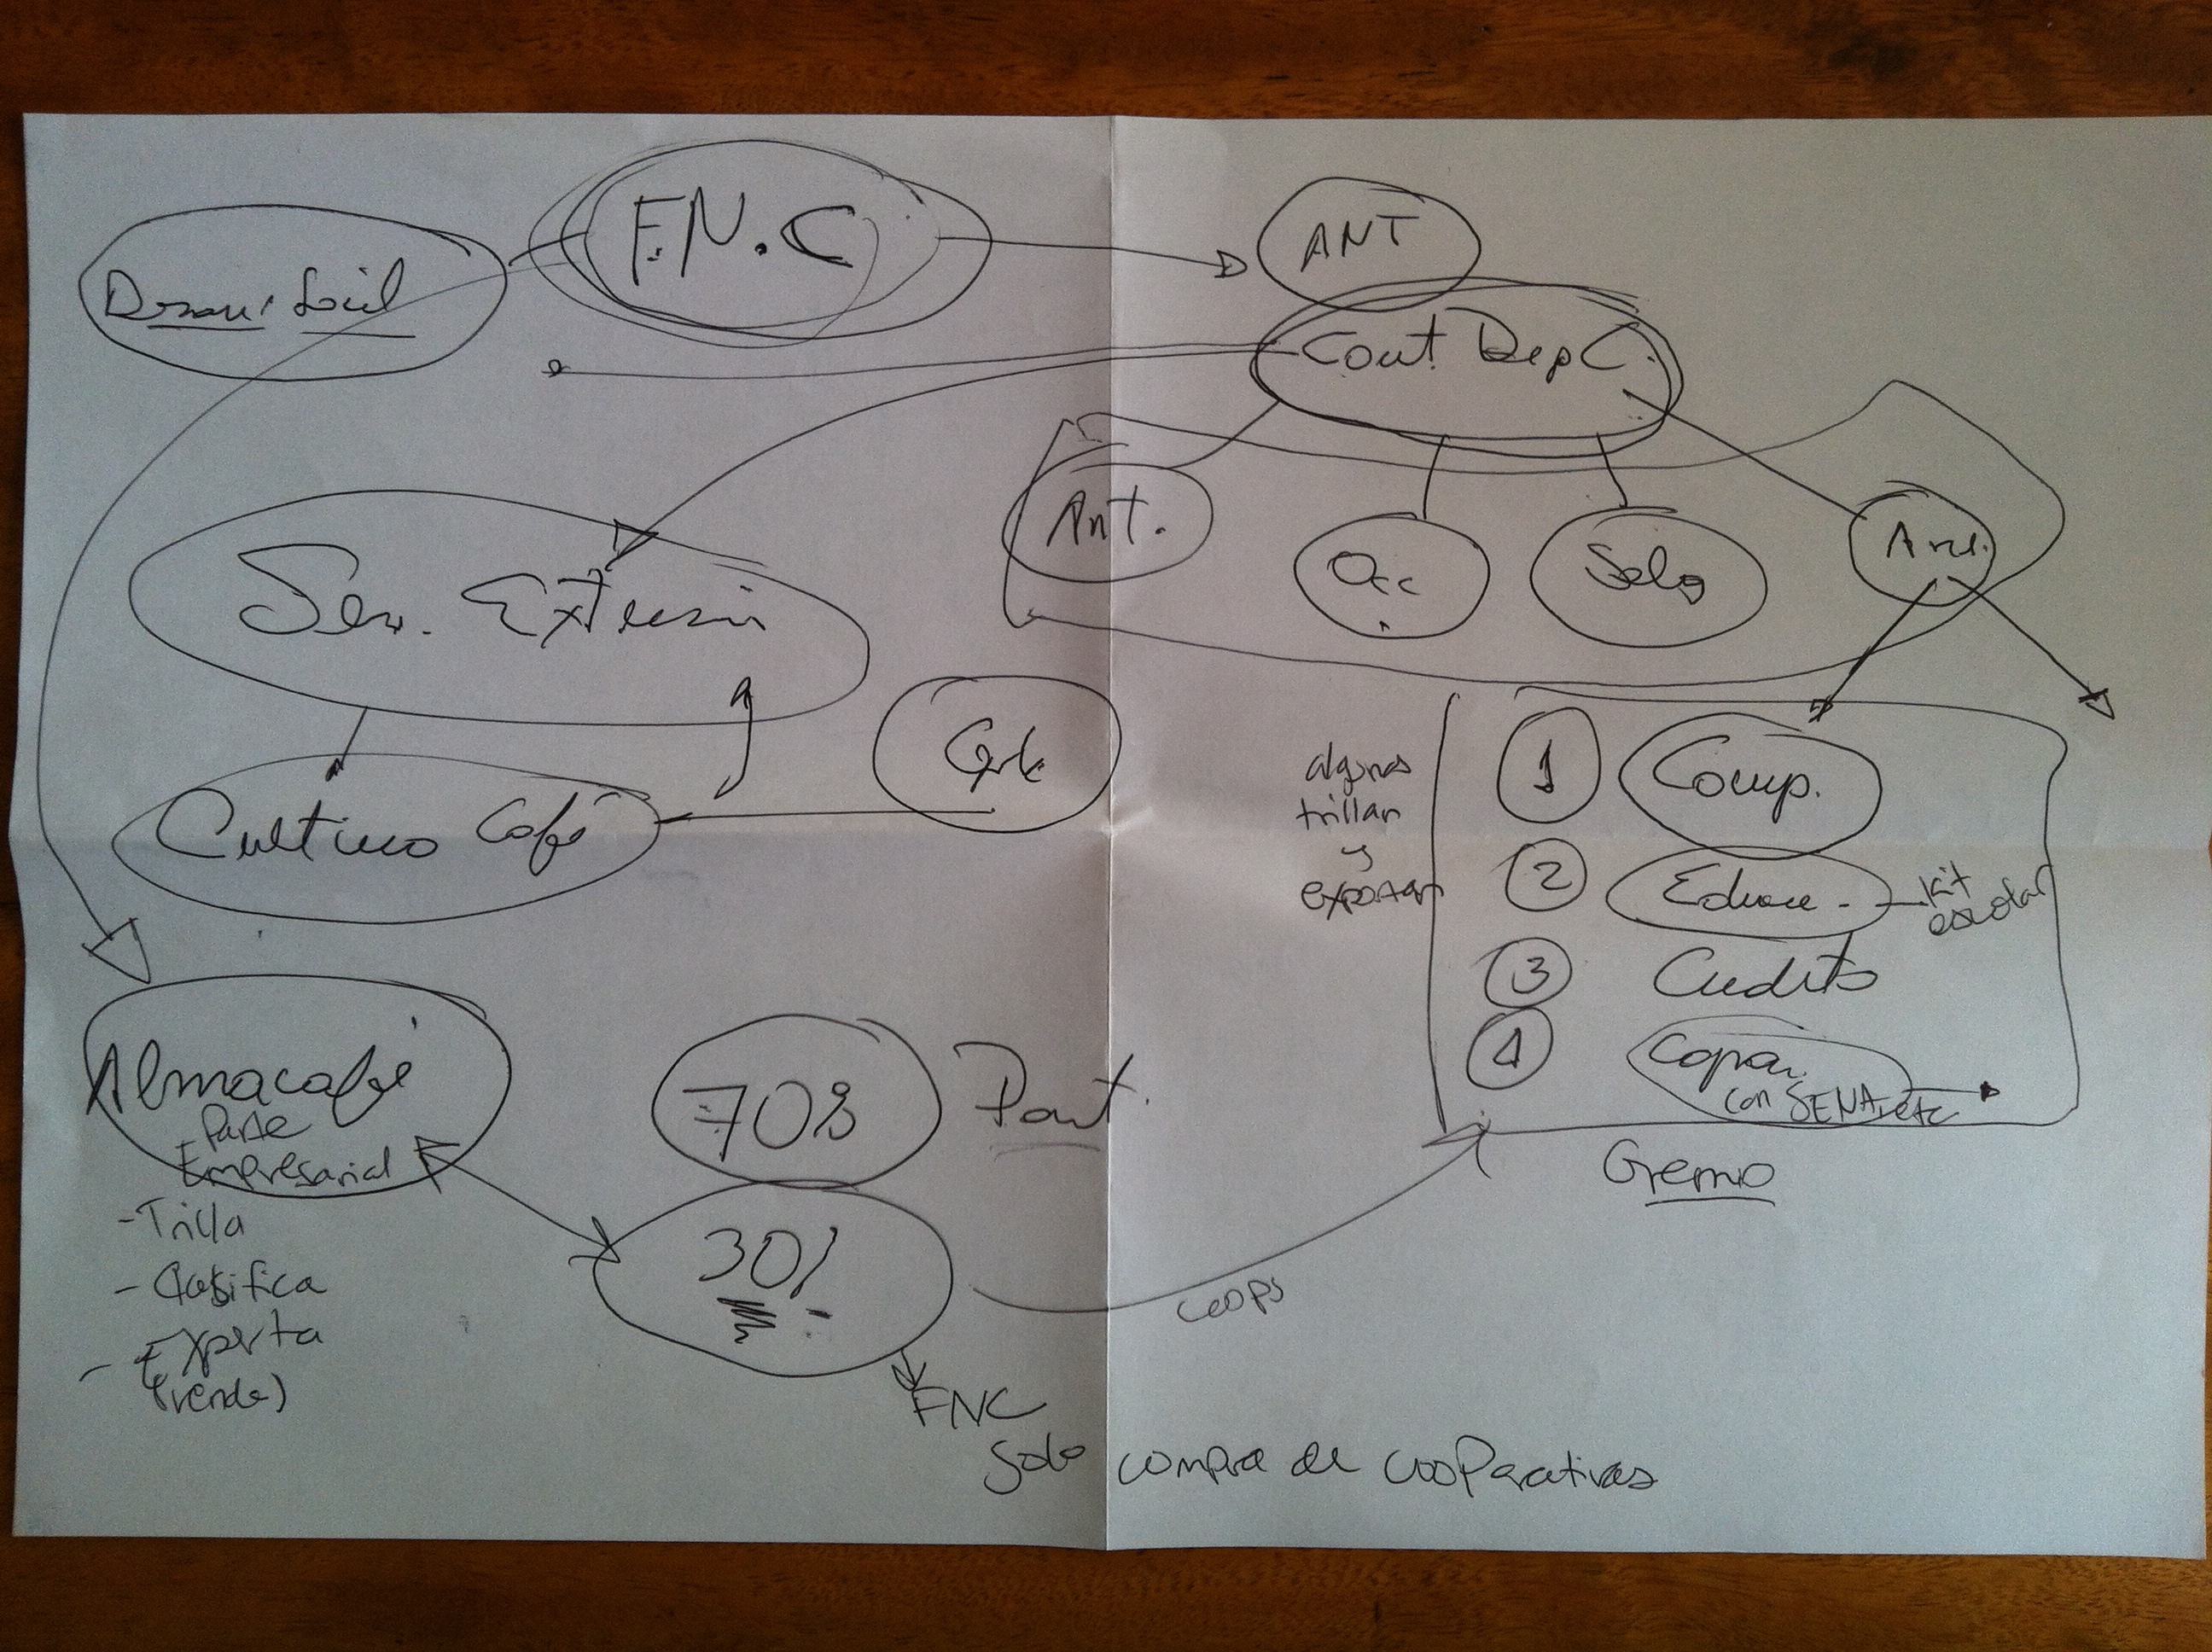 F.N.C
ANT
Desarr. Social
Comt. Dep C.
Ant.
Occ
Salg
And.
Ser. Extensión
Cultivo Café
algunas
trillan
y
exportan
1 Comp.
2 Educac. - kit
escolar
3 Credito
4 Capac.
con SENA, etc
Gremio
Almacafé
Parte
Empresarial
- Trilla
- Clasifica
- Exporta
(vende)
70%
Part.
30%
coops
FNC
solo compra de cooperativas